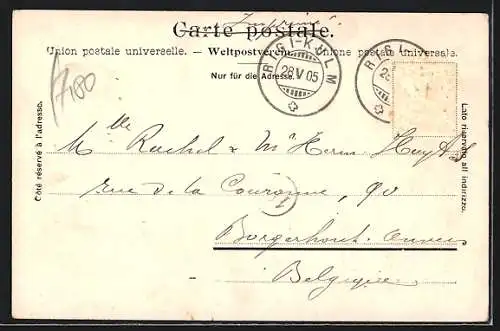 Carte postale.
Imprimé
Union postale universelle. – Weltpostverein. – Unione postale universale.
Nur für die Adresse.
RIGI-KULM
26.V.05
RIGI-
7180
Côté réservé à l'adresse.
Lato riservato all indirizzo.
Mlle Rachel & Mr Herm
rue de la Couronne, 90
1
Borgerhout-Anvers
Belgique